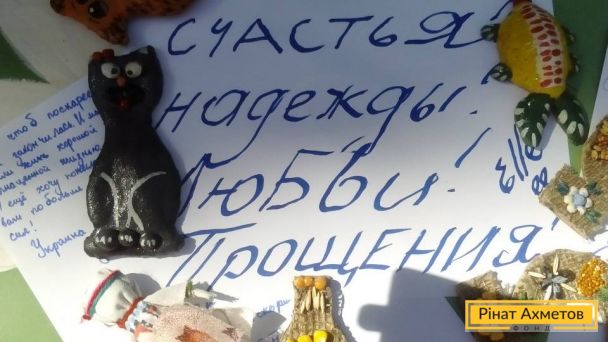 счастья!
надежды!
Любви!
Прощения!
чтоб поскорее
закончилась
жить хорошей
жизнью
ещё хочу
вам побольше
сил!
Украина
Рінат Ахметов
ФОНД